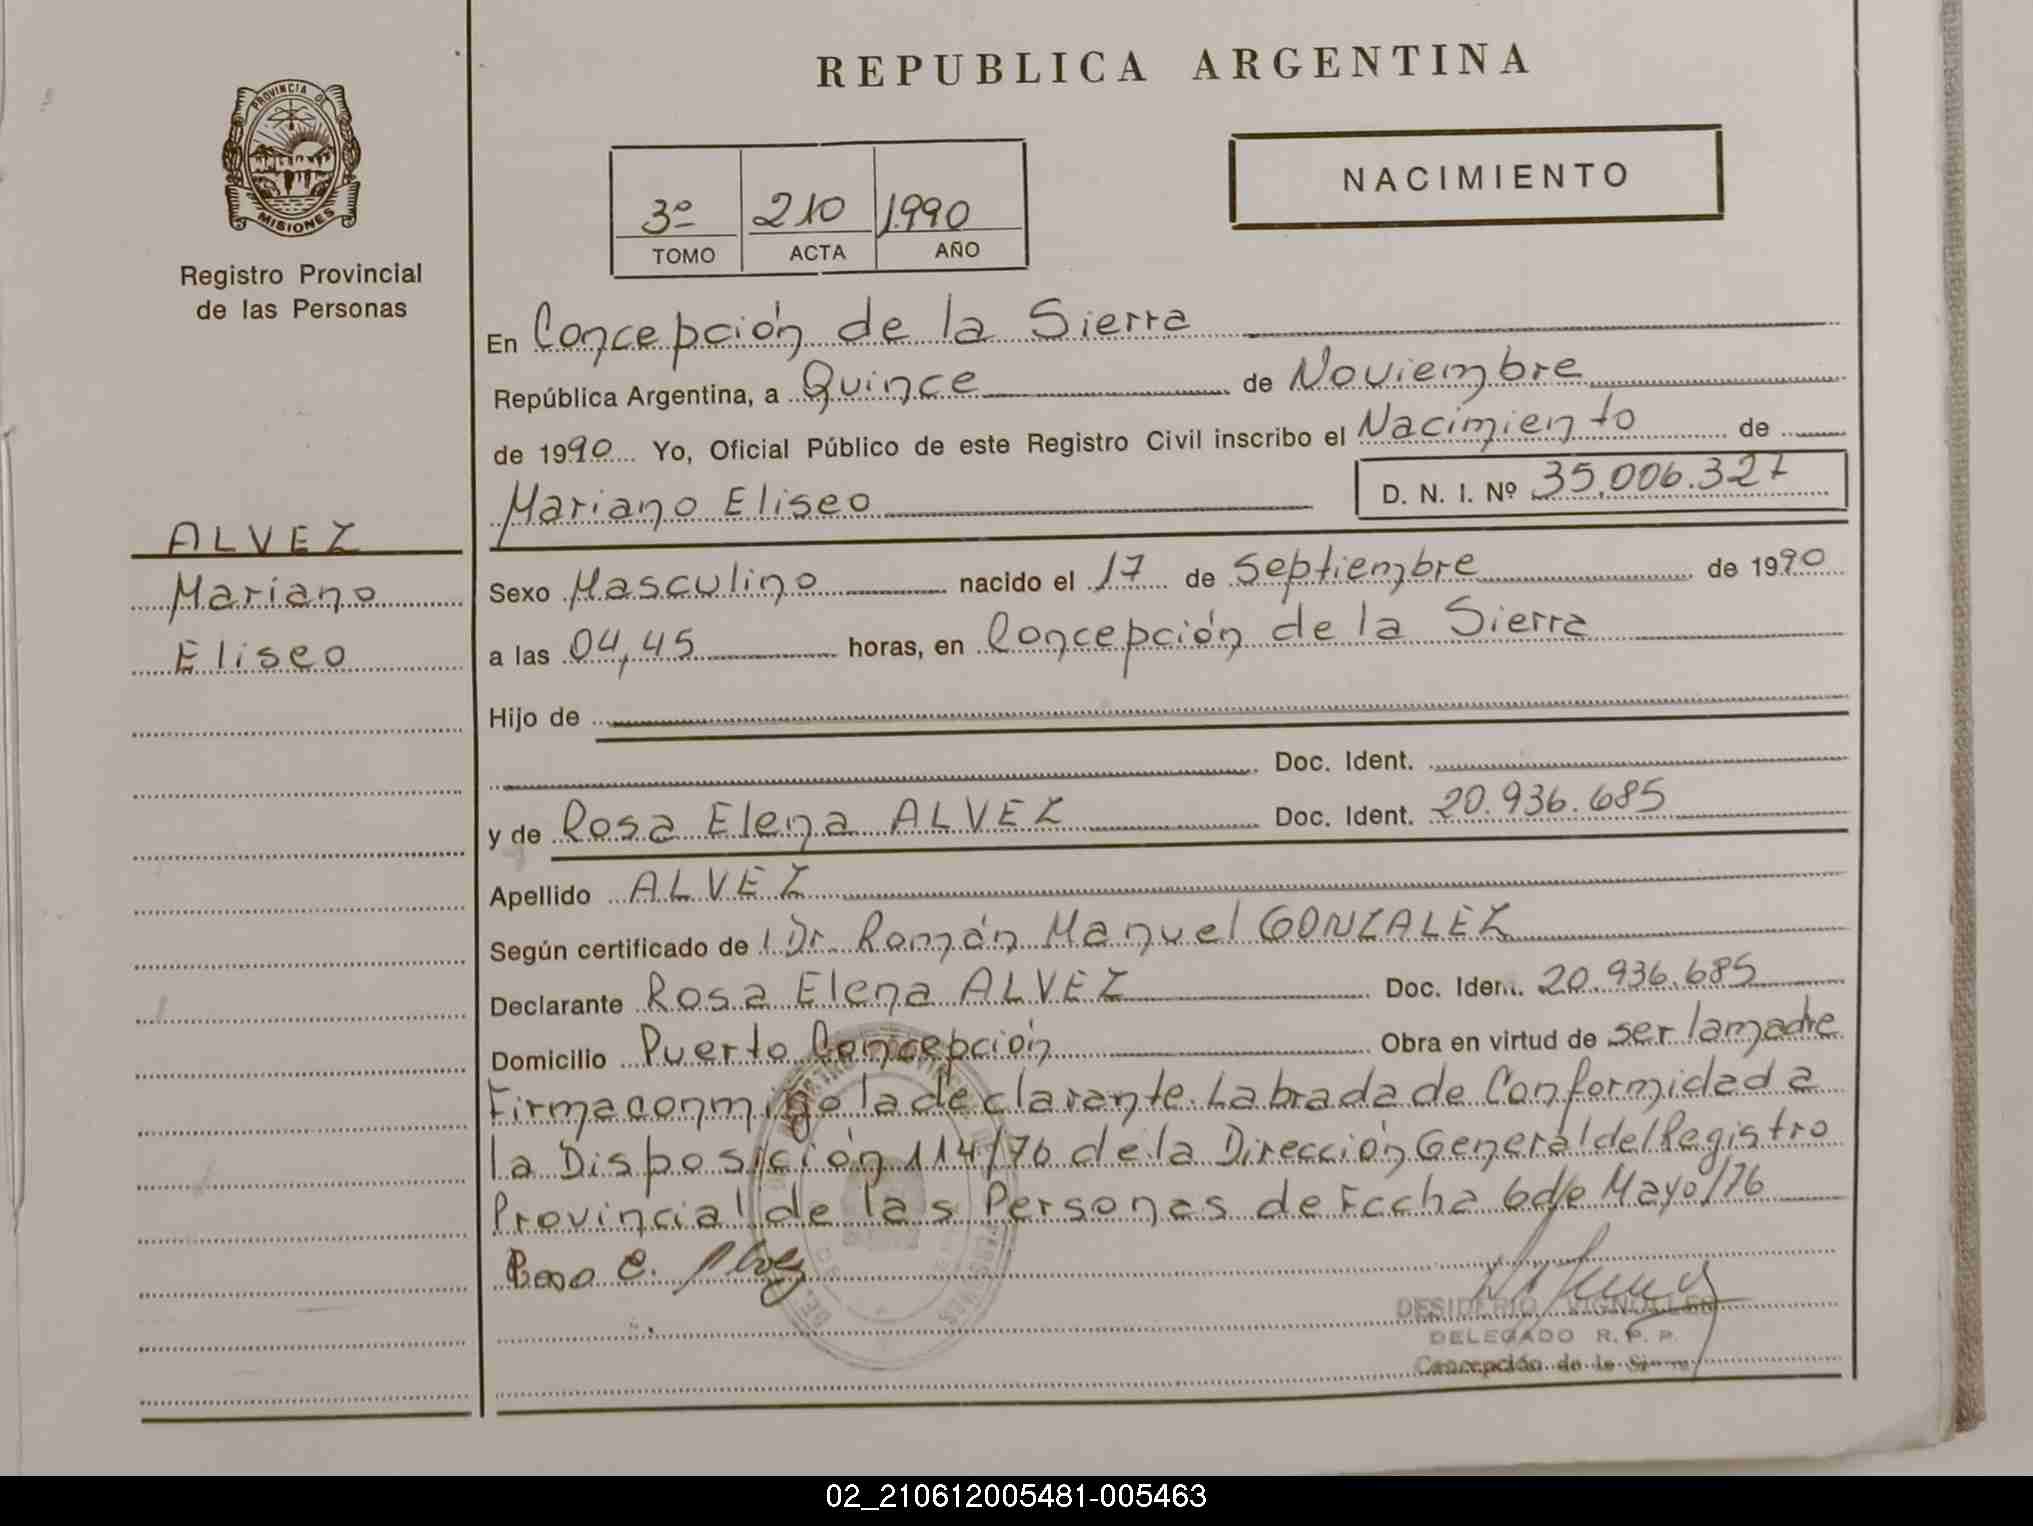 REPUBLICA ARGENTINA
PROVINCIA DE
MISIONES
Registro Provincial
de las Personas
3º 210 1.990
TOMO ACTA AÑO
NACIMIENTO
En Concepción de la Sierra
República Argentina, a Quince de Noviembre
de 1990 Yo, Oficial Público de este Registro Civil inscribo el Nacimiento de
Mariano Eliseo D. N. I. Nº 35.006.327
ALVEZ
Mariano
Eliseo
Sexo Masculino nacido el 17 de Septiembre de 1990
a las 04,45 horas, en Concepción de la Sierra
Hijo de
Doc. Ident.
y de Rosa Elena ALVEZ Doc. Ident. 20.936.685
Apellido ALVEZ
Según certificado de l Dr. Román Manuel GONZALEZ
Declarante Rosa Elena ALVEZ Doc. Ident. 20.936.685
Domicilio Puerto Concepción Obra en virtud de ser la madre
Firma conmigo la declarante. Labrada de Conformidad a
la Disposición 114/76 de la Dirección General del Registro
Provincial de las Personas de Fecha 6 de Mayo/76
Rosa E. Alvez
DESIDERIO VIGNOLLES
DELEGADO R. P. P.
Concepción de la Sierra
02_210612005481-005463